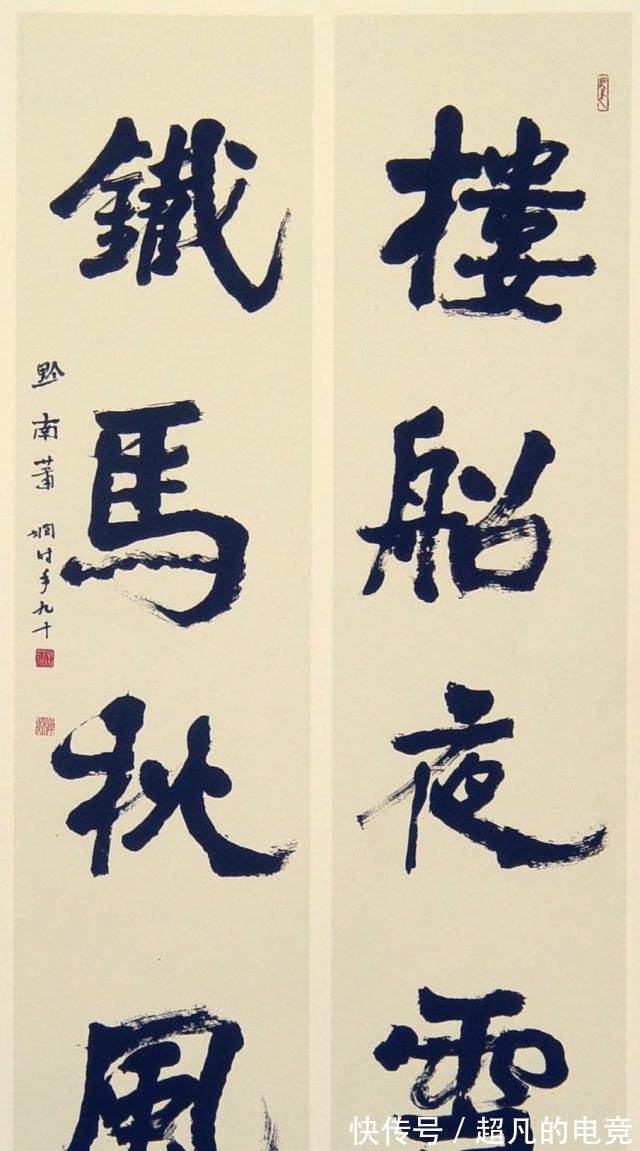 樓船夜雪
鐵馬秋風
黔南蕭嫻時年九十
快传号 / 超凡的电竞